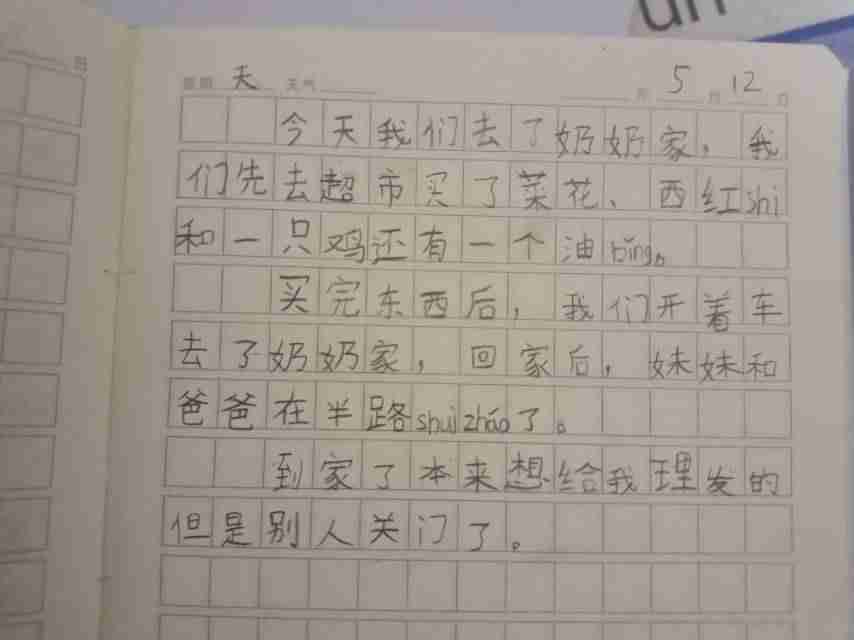 un
星期 天 天气 月 5 月 12 日
今天我们去了奶奶家，我
们先去超市买了菜花、西红shi
和一只鸡还有一个油bǐng。
买完东西后，我们开着车
去了奶奶家，回家后，妹妹和
爸爸在半路shuì zháo了。
到家了本来想给我理发的
但是别人关门了。